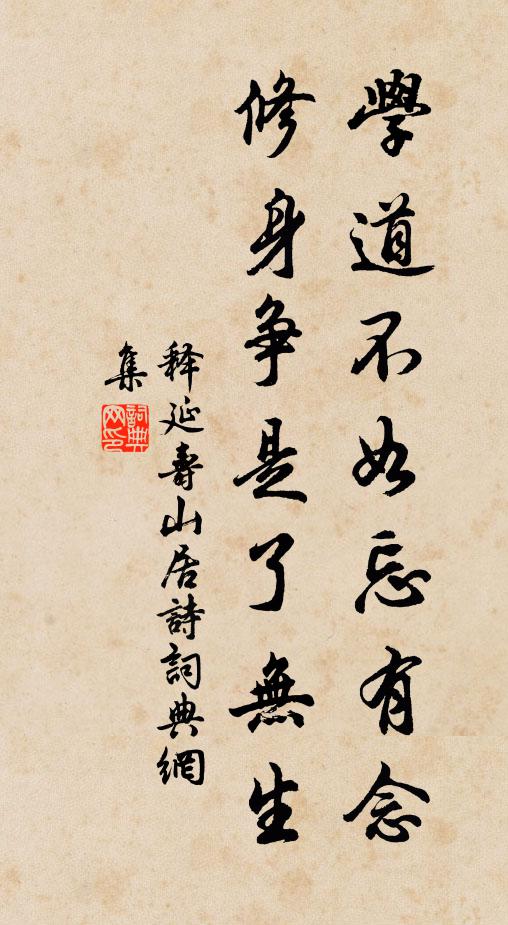 學道不如忘有念
修身争是了無生
釋延壽山居詩詞典網
集
詞典网印